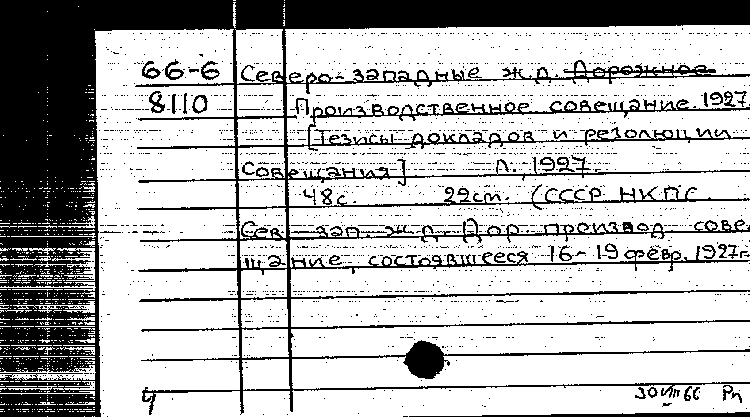 66-6 Северо-западные ж.д. Дорожное
8110 Производственное совещание. 1927
[Тезисы докладов и резолюции
Совещания] Л., 1927.
48с. 22см. (СССР НКПС
Сев.-зап. ж.д. Дор. производ. сове-
щание, состоявшееся 16-19 февр. 1927г.
4 30 VIII 66 Рп